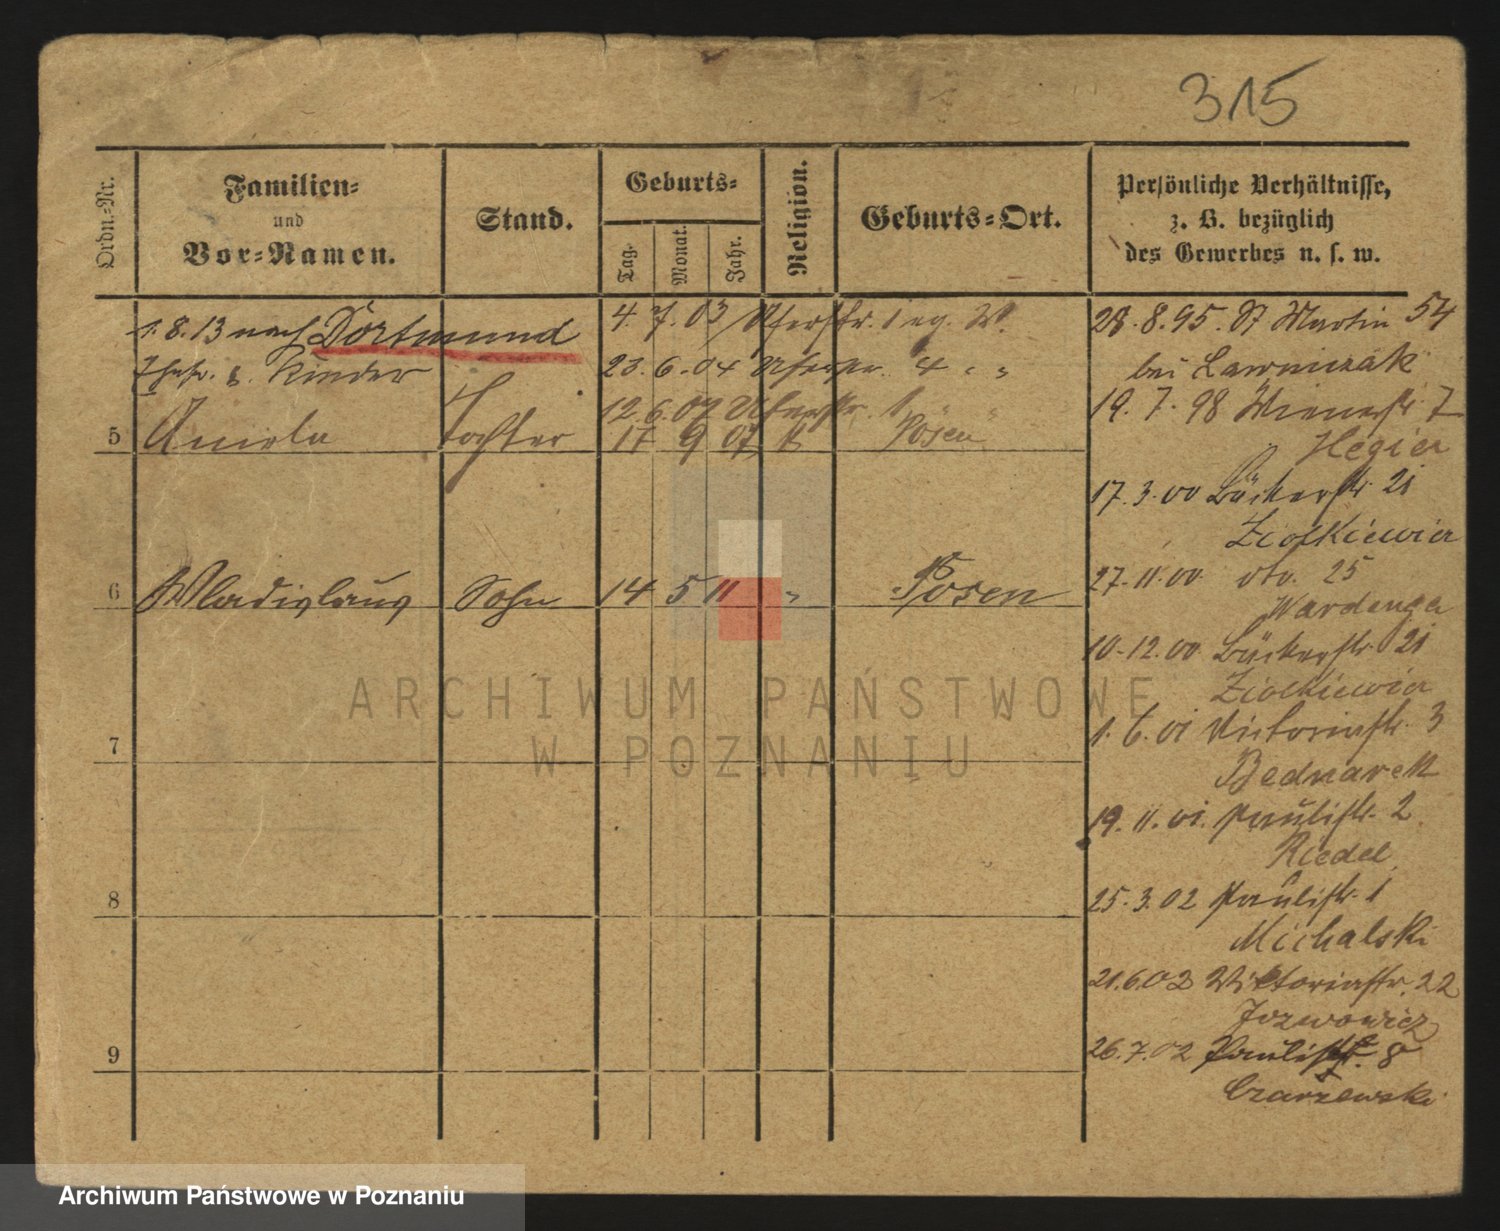 315
Ordn.-Nr.
Familien-
und
Vor-Namen.
Stand.
Geburts-
Tag.
Monat.
Jahr.
Religion.
Geburts-Ort.
Persönliche Verhältnisse,
z. B. bezüglich
des Gewerbes u. s. w.
1.8.13 nach Dortmund
Kinder
4. 7. 03 Uferstr. 1
23. 6. 04 4 " "
12 6. 07 Uferstr. 1 " "
5 Aniela Tochter 17 9 07 k Posen
6 Wladislaus Sohn 14 5 11 " Posen
7
8
9
28. 8. 95. St Martin 54
bei Lawniczak
19. 7. 98 Wienerstr. 7
Hegier
17. 3. 00 Bäckerstr. 21
Ziolkiewicz
27. 11. 00 dto. 25
Wardenga
10. 12. 00 Bäckerstr. 21
Ziolkiewicz
1. 6. 01 Victoriastr. 3
Bednarek
19. 11. 01. Paulistr. 2
Riedel
25. 3. 02 Paulistr. 1
Michalski
21.6.02 Viktoriastr. 22
Jozwowicz
26. 7. 02 Paulistr. 8
Czarzewski
ARCHIWUM PAŃSTWOWE
W POZNANIU
Archiwum Państwowe w Poznaniu